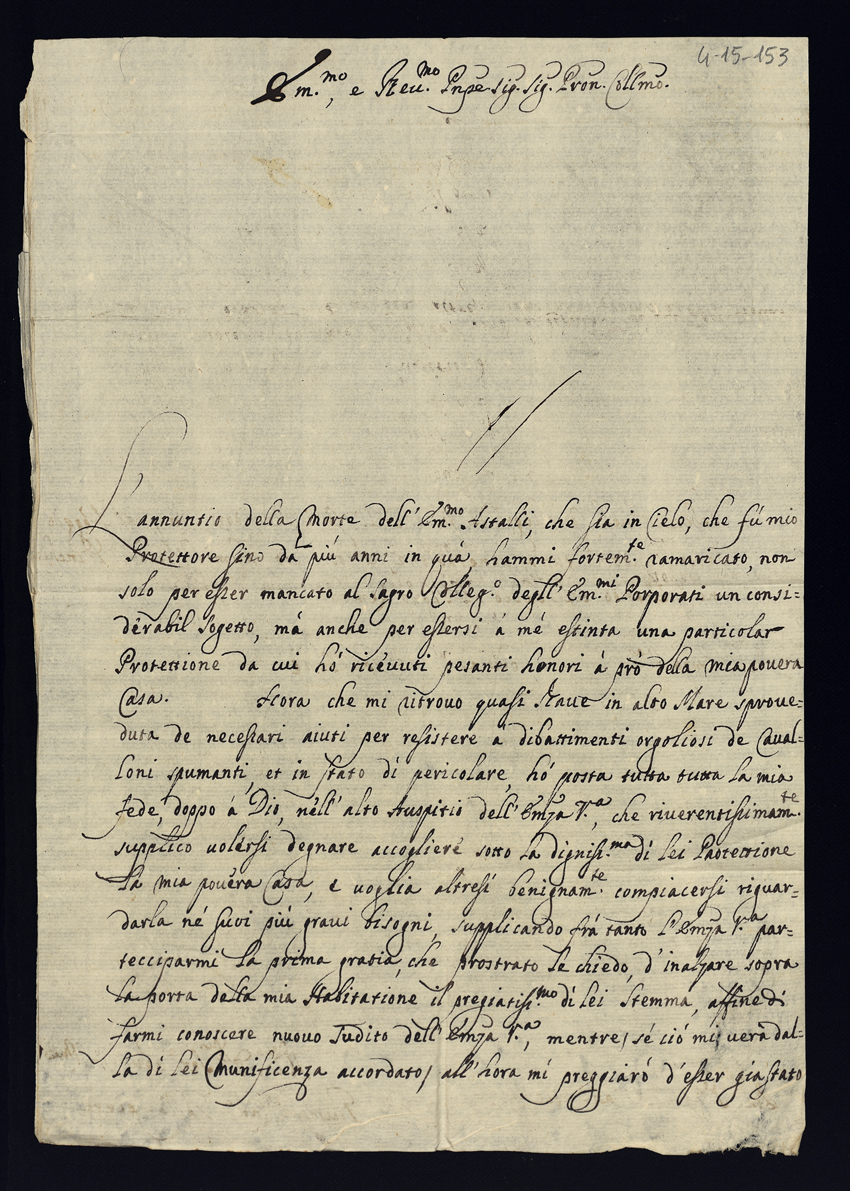 4-15-153
Em.mo, e Reu.mo Pnpe Sig. Sig. Pron. Collmo.
L'annuntio della Morte dell'Em.mo Astalli, che sia in Cielo, che fú mio
Protettore sino da piú anni in quá, hammi fortem.te ramaricato, non
solo per esser mancato al Sagro Colleg.o degll'Em.mi Porporati un consi=
derabil sogetto, má anche per essersi á mé estinta una particolar
Protettione da cui hó riceuuti pesanti honori á pró della mia pouera
Casa. Hora che mi ritrouo quasi Naue in alto Mare sproue=
duta de necessari aiuti per resistere a dibattimenti orgoliosi de Caual=
loni spumanti, et in stato di pericolare, hó posta tutta tutta la mia
fede, doppo á Dio, nell'alto Auspitio dell'Emza V.a, che riuerentissimam.te
supplico uolersi degnare accogliere sotto la dignis.ma di lei Protettione
la mia pouera Casa, e uoglia altresí benignam.te compiacersi riguar=
darla né suoi piú graui bisogni, supplicando frá tanto l'Emza V.a par=
tecciparmi la prima gratia, che prostrato le chiedo, d'inalzare sopra
la porta della mia Habitatione il pregiatis.mo di lei Stemma, affine di
farmi conoscere nuouo Sudito dell'Emza V.a, mentre/ sé ció mi uerá dal=
la di lei Munificenza accordato/ all'hora mi preggiaró d'esser giastato